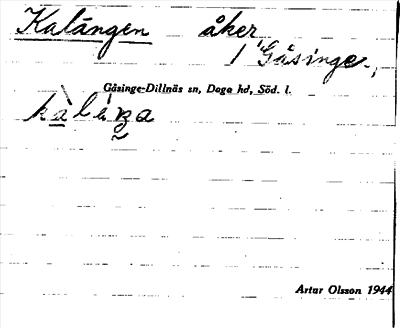 Kalängen åker
1 Gåsinge,
Gåsinge-Dillnäs sn, Daga hd, Söd. l.
Artur Olsson 1944